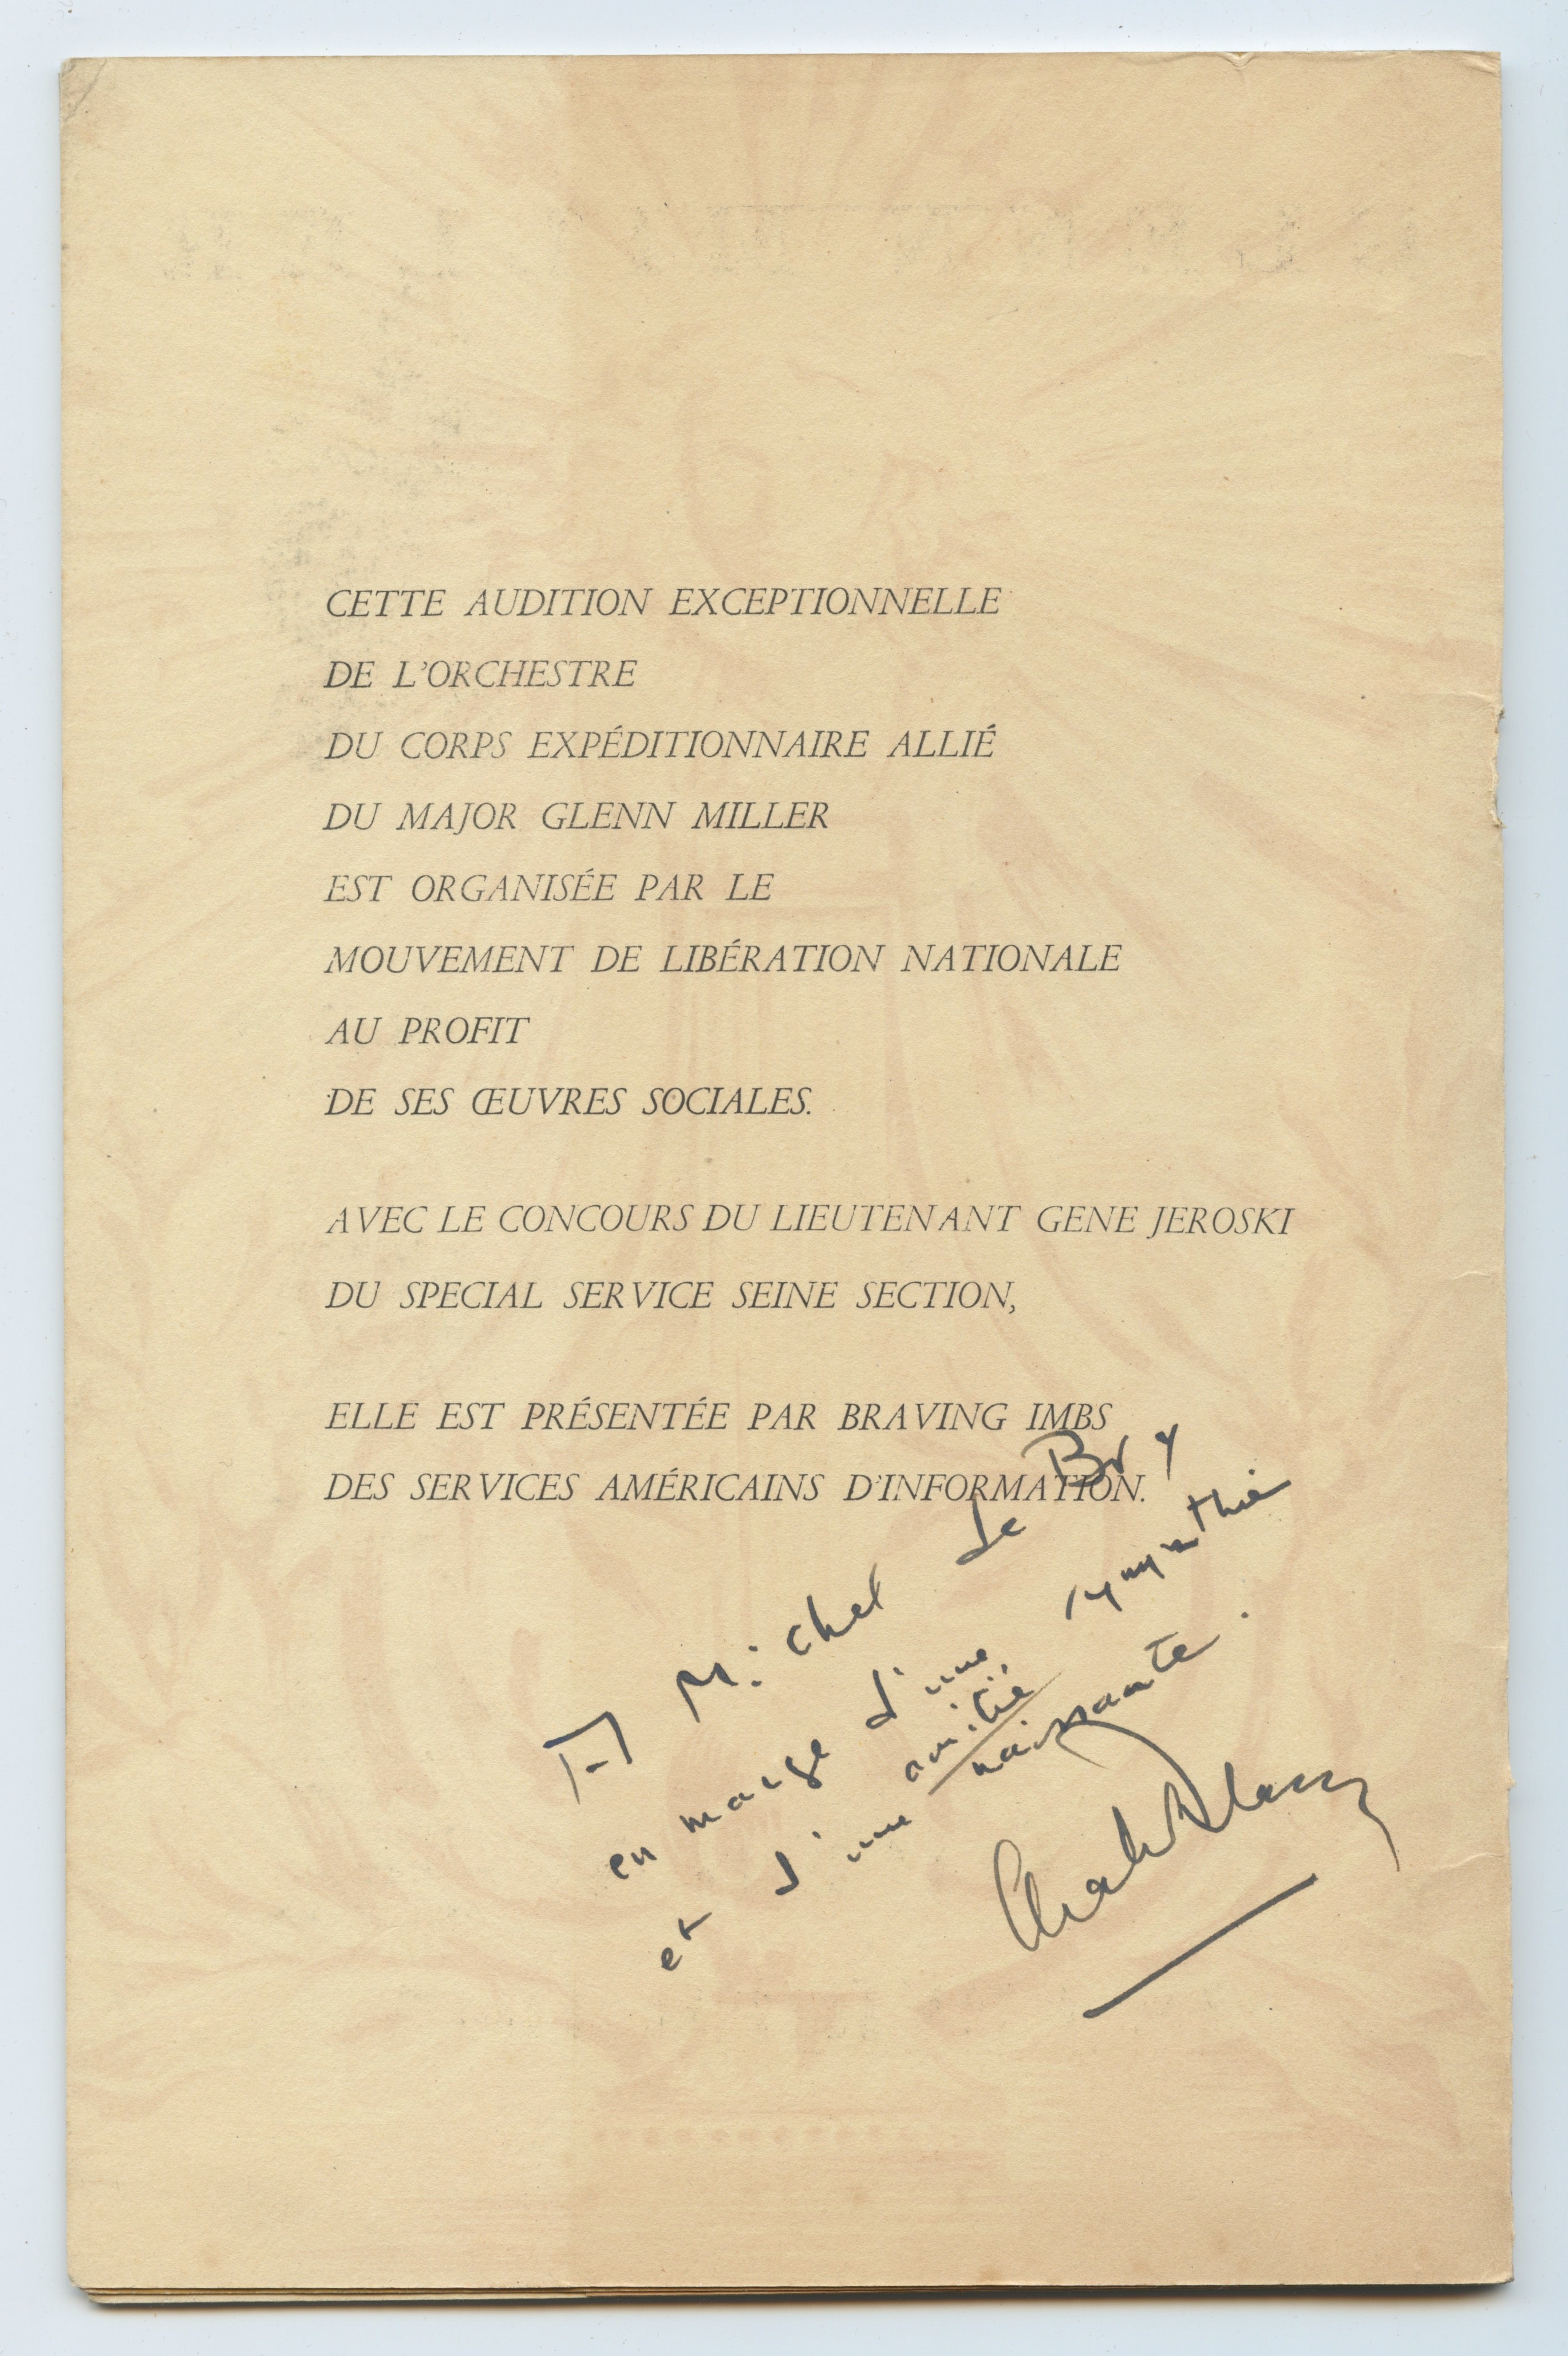 CETTE AUDITION EXCEPTIONNELLE
DE L'ORCHESTRE
DU CORPS EXPÉDITIONNAIRE ALLIÉ
DU MAJOR GLENN MILLER
EST ORGANISÉE PAR LE
MOUVEMENT DE LIBÉRATION NATIONALE
AU PROFIT
DE SES ŒUVRES SOCIALES.
AVEC LE CONCOURS DU LIEUTENANT GENE JEROSKI
DU SPECIAL SERVICE SEINE SECTION,
ELLE EST PRÉSENTÉE PAR BRAVING IMBS
DES SERVICES AMÉRICAINS D'INFORMATION.
A Michel de Bry
en marge d'une sympathie
et d'une amitié naissante.